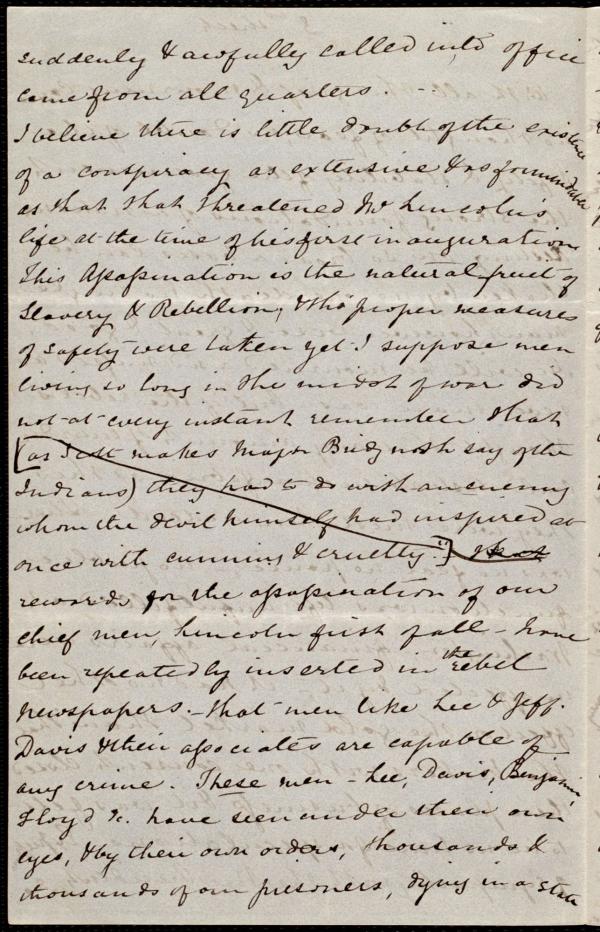 suddenly & awfully called into office
come from all quarters. -
I believe there is little doubt of the existence
of a conspiracy as extensive & as formidable
as that that threatened Mr Lincoln's
life at the time of his first inauguration
This Assassination is the natural fruit of
Slavery & Rebellion, & tho' proper measures
of safety were taken yet I suppose men
living so long in the midst of war did
not at every instant remember that
[as Scott makes Major Bridgnorth say of the
Indians) they had to do with an enemy
whom the devil himself had inspired at
once with cunning & cruelty."] that
rewards for the assassination of our
chief men, Lincoln first of all - have
been repeatedly inserted in the rebel
newspapers. - that men like Lee & Jeff.
Davis & their associates are capable of
any crime. These men - Lee, Davis, Benjamin,
Floyd &c. have seen under their own
eyes, & by their own orders, thousands &
thousands of our prisoners, dying in a state